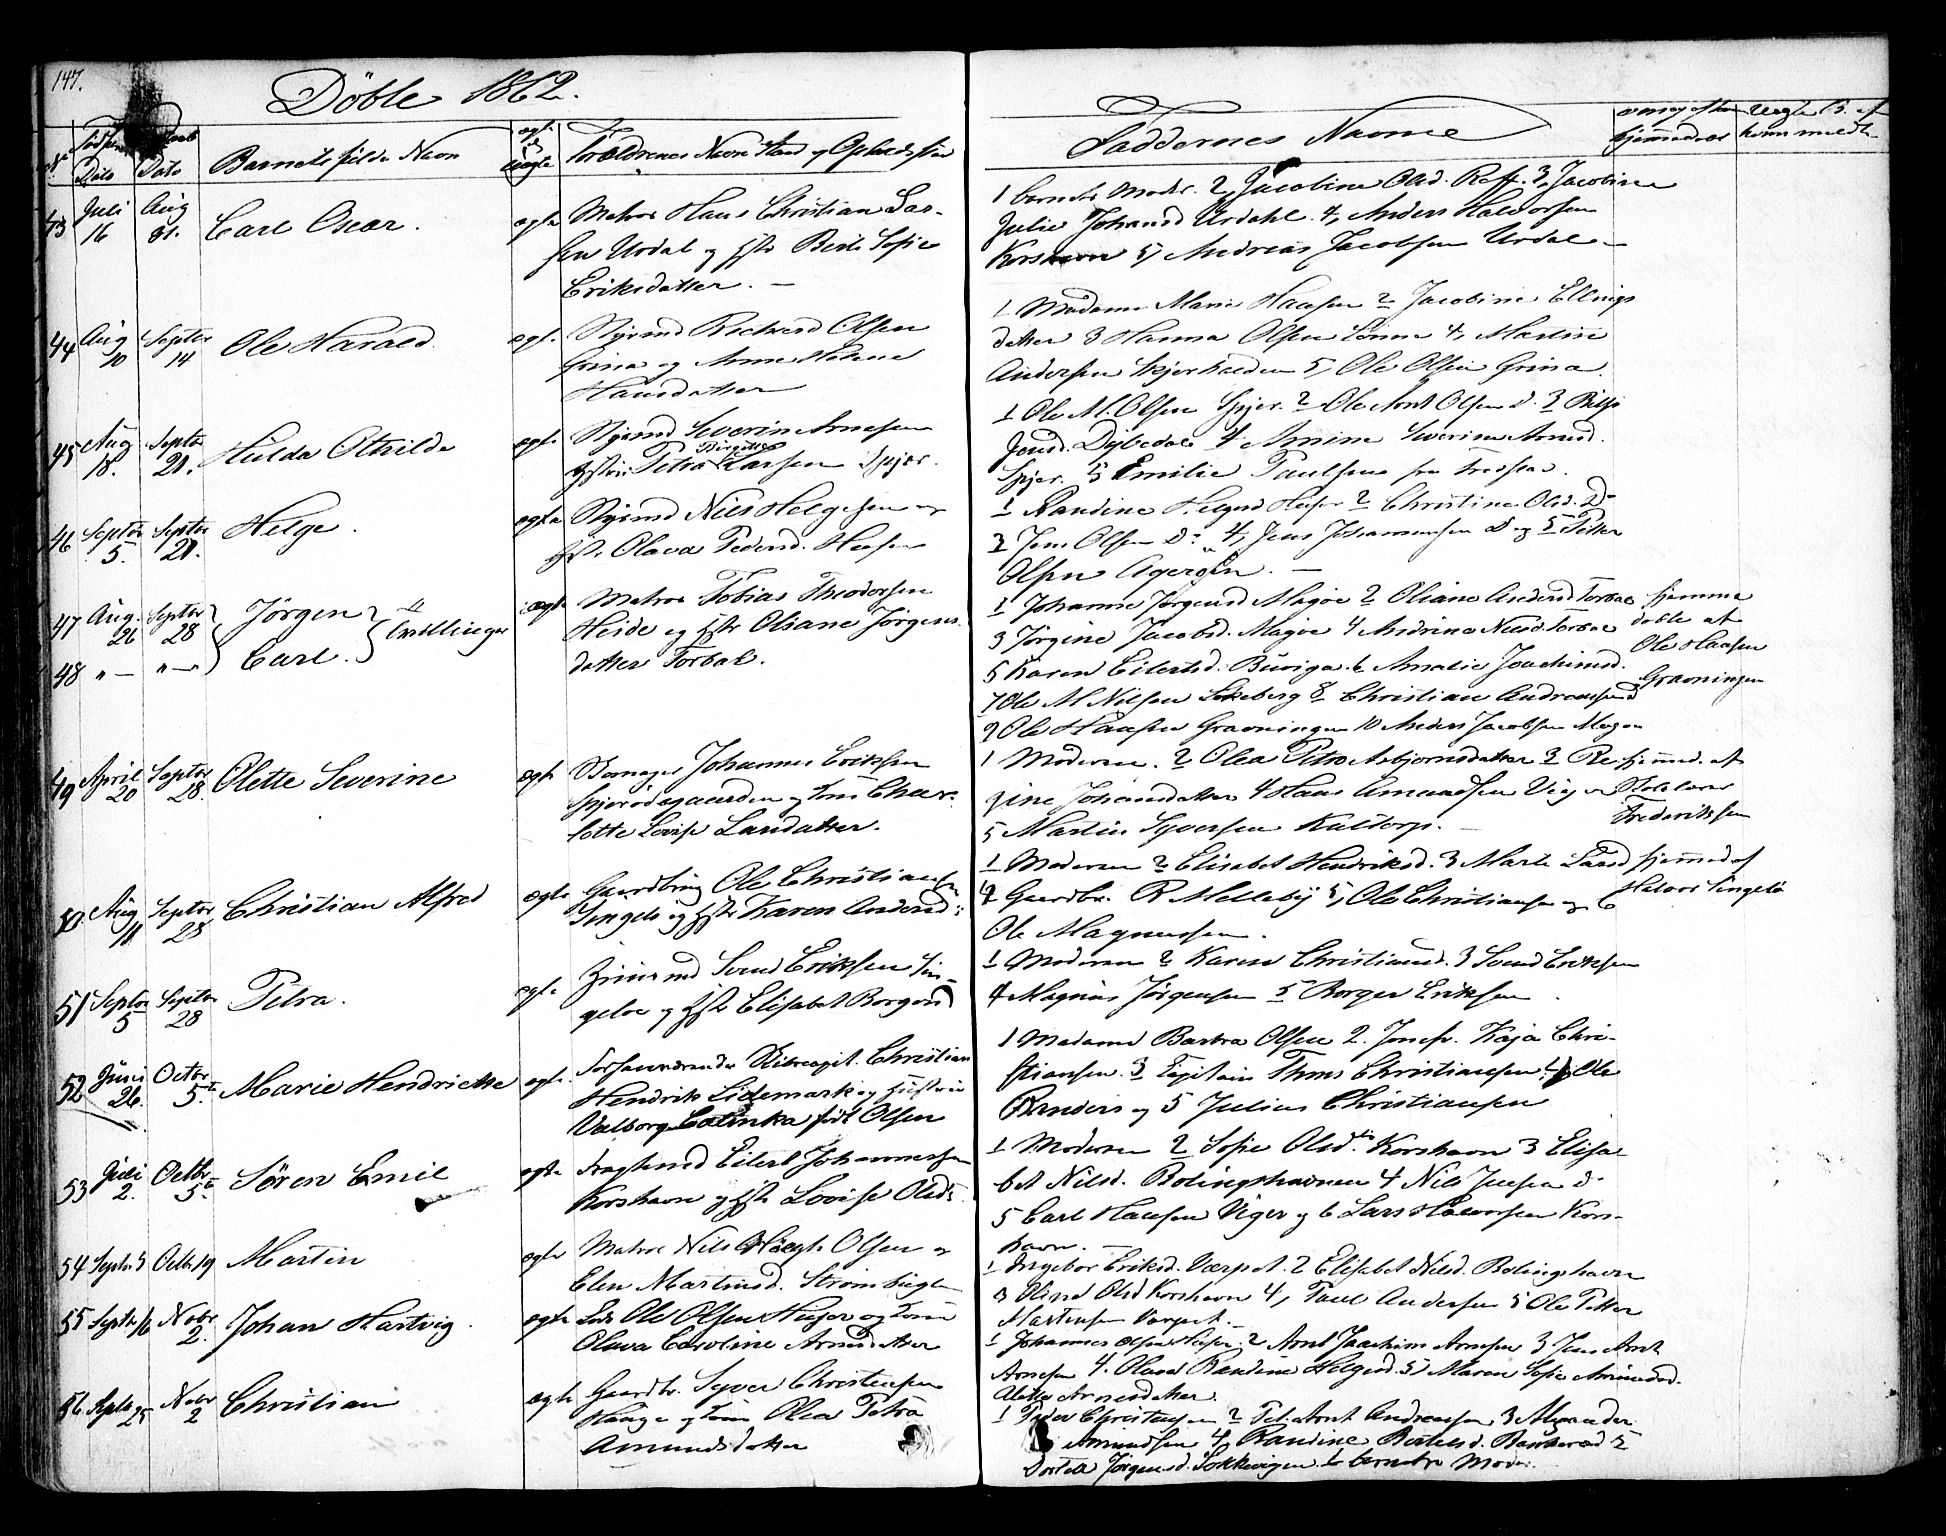 147.
Döbte 1862.
No Födsels Dato
Daabs Dato
Barnets fulde Navn
ægte ell. uægte
Forældrenes Navn Stand og Opholdssted
Faddernes Navne
hjemmedøbt
43 Juli 16 Aug 31. Carl Oscar. ægte
Matros Hans Christian Lar-
sen Urdal og Hstr Berte Sofie
Eriksdatter. —
1 barnets Moder. 2, Jacobine Olsd. Raff. 3, Jacobine
Julie Johansd Urdahl. 4, Anders Halvorsen
Korshavn 5, Andreas Jacobsen Urdal —
44 Aug 10 Septbr 14 Ole Harald. ægt.
Styrmd Richard Olsen
Grina og Anne Helene
Hansdatter
1 Madame Marie Hansen 2 Jacobine Ellings
datter 3 Hanna Olsen Lönne 4, Martin
Andersen Skjerhalden 5, Ole Olsen Grina.
45 Aug 18. Septbr 21. Hulda Othilde ægte
Styrmd Severin Arnesen
Hstru Petra Birgitte Larsen Spjær.
1 Ole M. Olsen Spjær. 2 Ole Arnt Olsen d. 3
Jonsd. Dybedal 4 Annine Severine Arnesd.
Spjær. 5 Emilie Paulsen fra Fredstad.
46 Septbr 5. Septbr 21. Helge. ægte
Styrmd Nils Helgesen og
Hst. Olava Pedersd. Heesen
1 Randine Helgesd Heeser 2 Christine Olsd. Do
3 Jens Olsen Do 4, Jens Johannesen D og 5 Petter
Olsen Agerøen. —
47 Aug. 26 Septbr 28 Jørgen
48 " — " — Carl. Tvillinger ægte
Matros Tobias Theodorsen
Heide og Hstr Oliane Jörgens
datter Torbal.
1 Johanne Jørgensd Magøe 2 Oliane Andersd Torbal
3 Jörgine Jacobsd. Magøe 4 Andrine Nilsd. Torbal
5 Karen Eilertsd. Buviga. 6 Amalie Joachimsd.
7 Ole M Nilsen Lökeberg 8 Christian Andreassen d
9 Ole Hansen Gravningen 10 Anders Jacobsen Magøe
hjemme
døbte af
Ole Hansen
Gravningen
49 April 20 Septbr 28. Olette Severine ægte
Skomager Johannes Eriksen
Spjærødegaarden og Kone Char-
lotte Lovise Larsdatter.
1 Moderen. 2 Olea Petra Asbjørnsdatter 3 Re-
gine Johannsdatter 4 Hans Amundsen Viger
5 Martin Syversen Kaltorp. —
hjemmed. af
Skolelærer
Frederiksen
50 Aug 11 Septbr 28 Christian Alfred ægte
Gaardbrug Ole Christiansen
Singelø og Hstr Karen Andersd:
1 Moderen 2 Elisabet Hendriksd. 3 Marte Larsd
4 Gaardbr. R Melleby 5, Ole Christiansen og 6
Ole Magnussen.
hjemmed af
Halvor Singelø
51 Septbr 5 Septbr 28 Petra. ægte
Svend Eriksen Sin-
geløe og Hst Elisabet Borgersd
1 Moderen 2 Karen Christiansd. 3 Svend Eriksen
4 Magnus Jørgensen 5 Borger Eriksen
52 Juni 26. Octbr 5te Marie Hendriette ægte
Forhenværende Skibscapit. Christian
Hendrik Lidemark og Hustrue
Valborg Catinka født Olsen
1 Madame Barbra Olsen 2. Jomfr. Kaja Chri-
stiansen. 3 Capitain Thms Christiansen 4, Ole
Randers og 5 Julius Christiansen
53 Juli 2. Octbr 5te Søren Emil ægte
Fragtemd Eilert Johannessen
Korshavn og Hstr Lovise Olsdtr.
1 Moderen 2 Sofie Olsdtr. Korshavn 3 Elisa-
bet Nilsd. Bølingshavnen 4 Nils Jensen d.
5 Carl Hansen Viger og 6 Lars Halvorsen Kors-
havn. —
54 Septbr 3 Octbr 19 Martin ægte
Matros Nils Høegh Olsen og
Elen Martinsd. Strømbugten
1 Ingebor Eriksd. Værpet. 2 Elisabet Nilsd. Bølingshavn
3 Oline Olsd Korshavn 4, Paul Andersen 5 Ole Petter
Martensen Værpet. —
55 Septbr 16 Novbr 2. Johan Hartvig. ægte
Lods Ole Olsen Heeser og Kone
Olava Caroline Arnesdatter
1 Johannes Olsen Heeser. 2 Arnt Joachim Arnesen 3 Jens Arnt
Arnesen 4. Olava Randine Helgesd. 5, Maren Sofie Arnesdatr.
Alette Arnesdatter.
56 Septbr 25 Novbr 2 Christian ægte
Gaardbr. Syver Christensen
Hauge og Kone Olea Petra
Amundsdatter
1 Peder Christensen 2 Pet. Arnt Andreassen, 3 Alexander
Amundsen 4, Randine Bertelsd. Bankerød 5
Dortea Jørgensd. Løkkevigen. 6 barnets Moder.